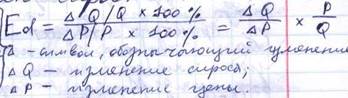 Ed = ΔQ/Q × 100 % / ΔP/P × 100 % = ΔQ/ΔP × P/Q
- символ, обозначающий изменение
ΔQ - изменение спроса;
ΔP - изменение цены.